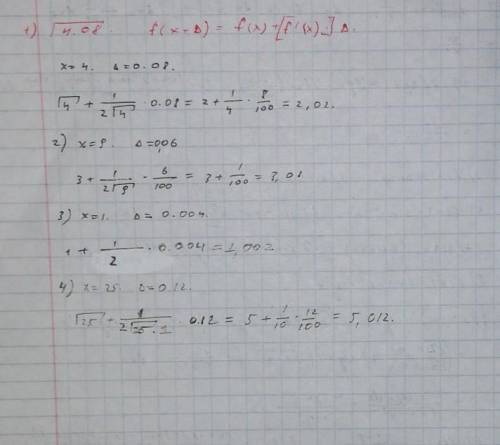 1) √4.08. f(x+Δ) = f(x) + [f'(x)] Δ.
x=4. Δ=0.08.
√4 + 1/(2√4) · 0.08 = 2 + 1/4 · 8/100 = 2,02.
2) x=9. Δ=0,06
3 + 1/(2√9) · 6/100 = 3 + 1/100 = 3,01
3) x=1. Δ= 0.004.
1 + 1/2 · 0.004 = 1,002
4) x=25. Δ=0.12.
√25 + 1/(2√25 · 1) · 0.12 = 5 + 1/10 · 12/100 = 5,012.